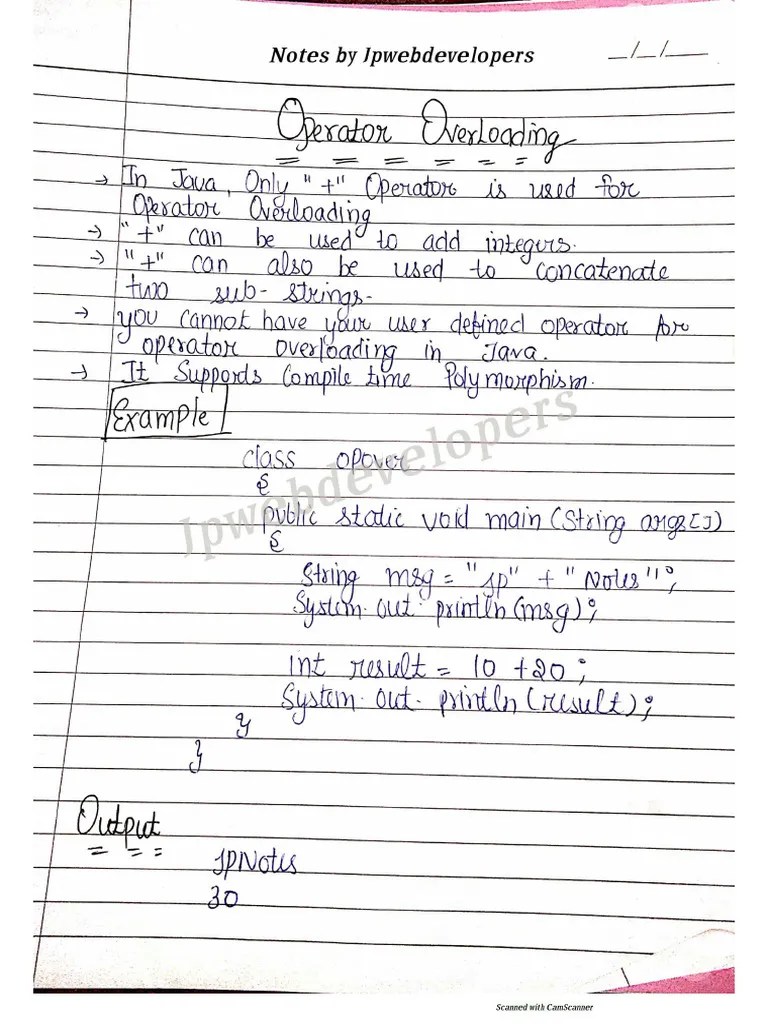 Notes by Jpwebdevelopers
_/_/__
Operator Overloading
→ In Java, Only "+" Operator is used for
Operator Overloading
→ "+" can be used to add integers.
→ "+" can also be used to concatenate
two sub-strings.
→ you cannot have your user defined operator for
operator overloading in Java.
→ It Supports Compile time Polymorphism.
Example
Jpwebdevelopers
class opover
{
public static void main (String args[])
{
String msg = "Jp" + "Notes";
System.out.println(msg);
int result = 10 +20;
System.out.println(result);
}
}
Output
JPNotes
30
Scanned with CamScanner